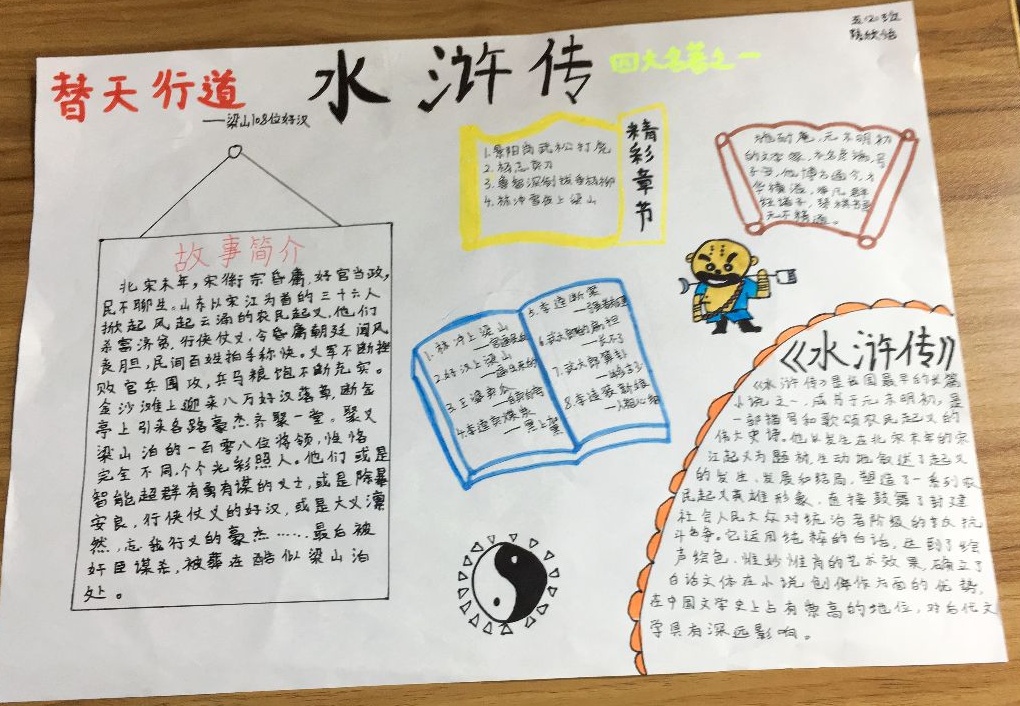 五(2)班
替天行道
——梁山108位好汉
水浒传
四大名著之一
精彩章节
1.景阳岗武松打虎
2.杨志卖刀
3.鲁智深倒拔垂杨柳
4.林冲雪夜上梁山
施耐庵,元末明初
的文学家
故事简介
北宋末年,宋徽宗昏庸,奸官当政,
民不聊生。山东以宋江为首的三十六人
掀起风起云涌的农民起义,他们
杀富济贫,行侠仗义,令昏庸朝廷闻风
丧胆,民间百姓拍手称快。义军不断挫
败官兵围攻,兵马粮饱不断充实。
金沙滩上迎来八万好汉落草,断金
亭上引来各路豪杰齐聚一堂。聚义
梁山泊的一百零八位将领,性格
完全不同,个个光彩照人。他们或是
智能超群有勇有谋的义士,或是除暴
安良,行侠仗义的好汉,或是大义凛
然,忘我行义的豪杰……最后被
奸臣谋杀,被葬在酷似梁山泊
处。
1.林冲上梁山
2.好汉上梁山
5.李逵断案
《水浒传》
《水浒传》是我国最早的长篇
小说之一,成书于元末明初,是
一部描写和歌颂农民起义的
伟大史诗。他以发生在北宋末年的宋
江起义为题材,生动地叙述了起义
的发生、发展和结局,塑造了一系列农
民起义英雄形象,直接鼓舞了封建
社会人民大众对统治者阶级的反抗
斗争。它运用纯粹的白话,达到了绘
声绘色、惟妙惟肖的艺术效果,确立了
白话文体在小说创作方面的优势,
在中国文学史上占有崇高的地位,对后代文
学具有深远影响。